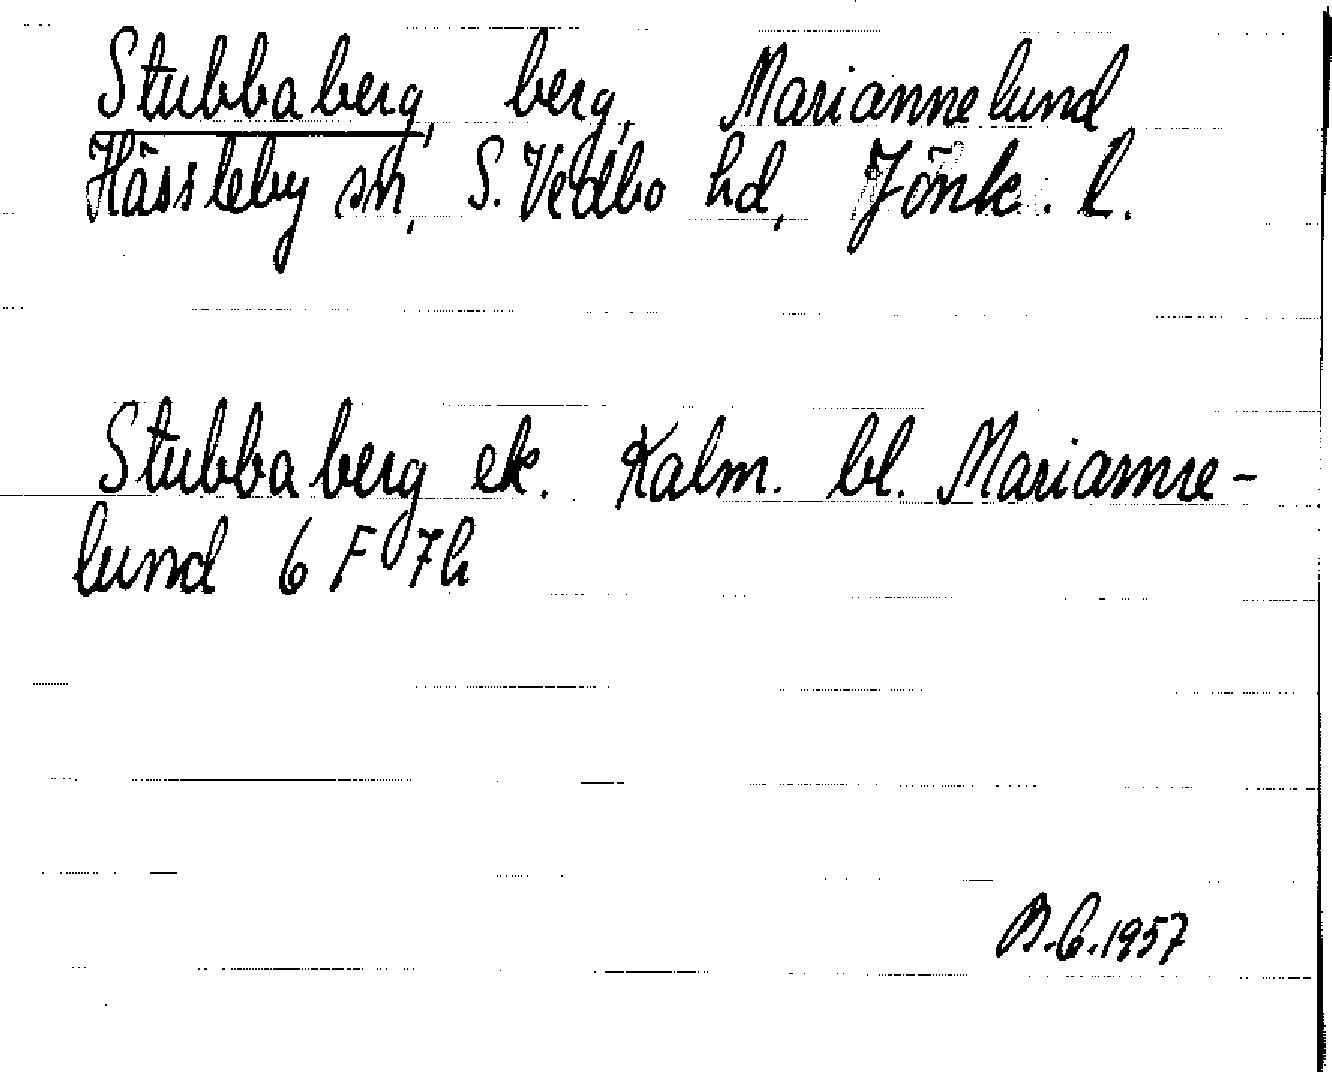 Stubbaberg, berg, Mariannelund
Hässleby sn, S. Vedbo hd, Jönk. l.
Stubbaberg ek. Kalm. bl. Marianne-
lund 6 F 7h
B.C. 1957